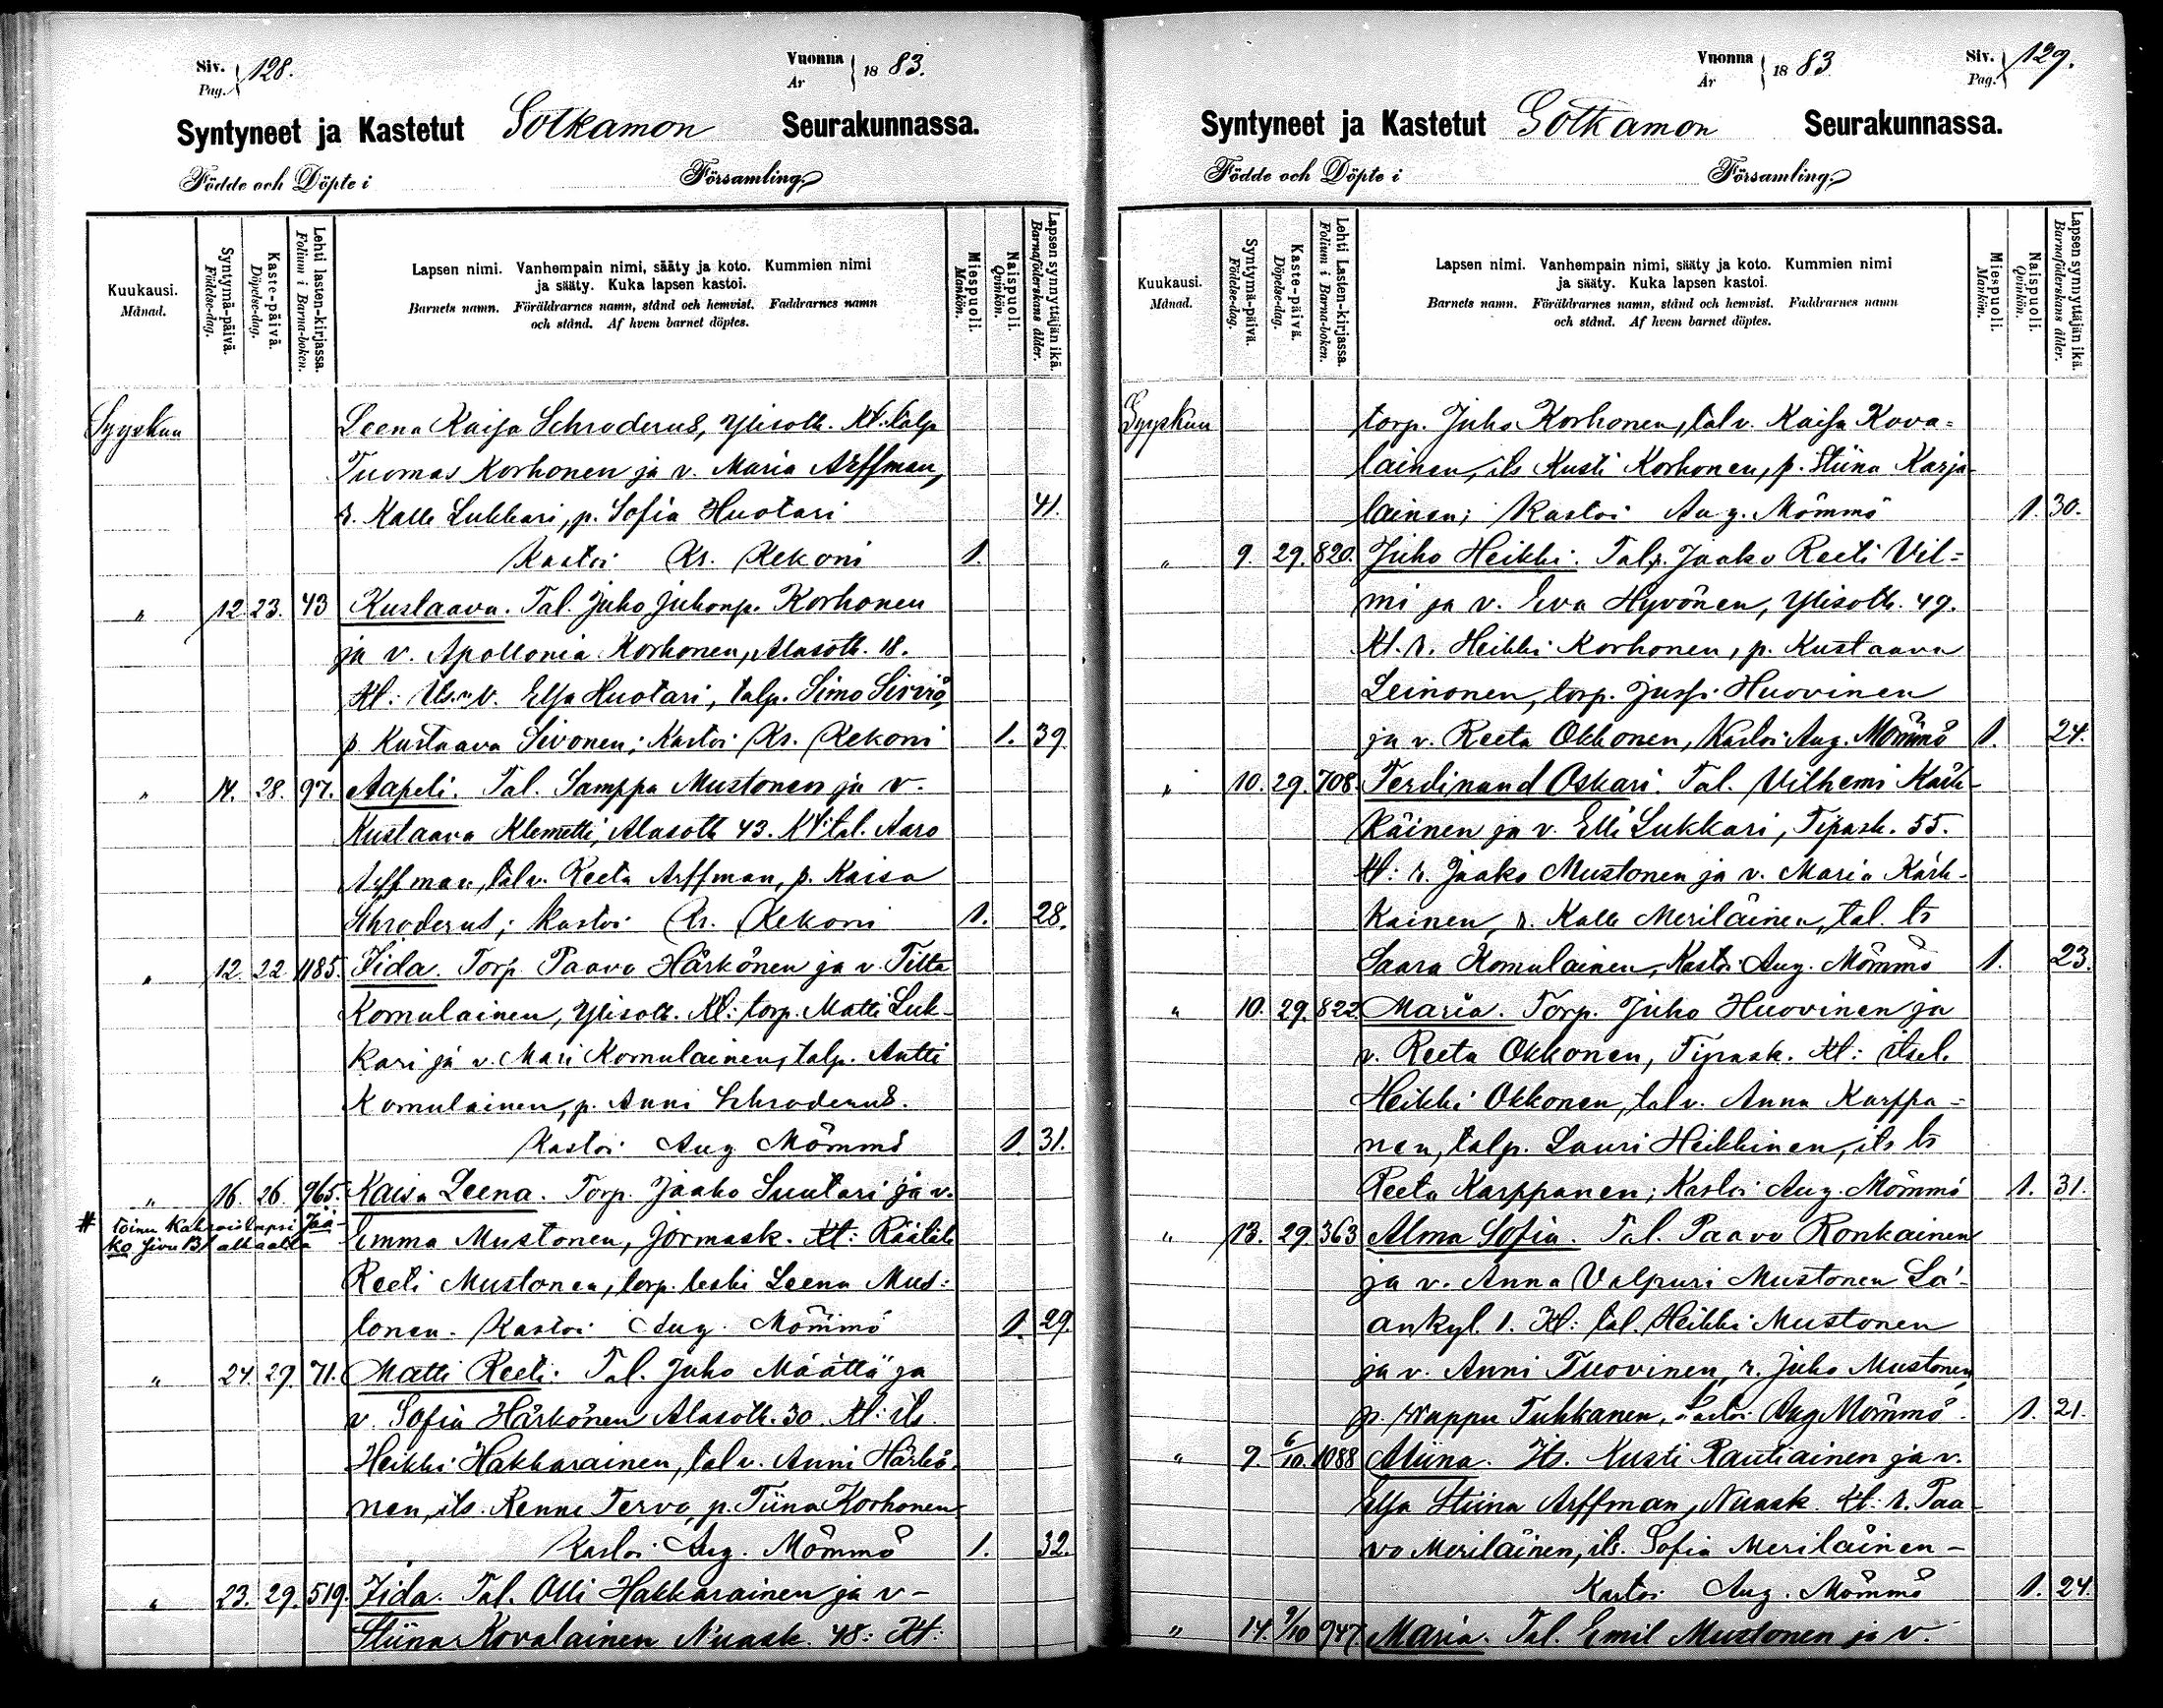 Siv. Pag. 128.
Vuonna År 1883.
Syntyneet ja Kastetut Sotkamon Seurakunnassa.
Födde och Döpte i Församling.
Kuukausi. Månad.
Syntymä-päivä. Födelse-dag.
Kaste-päivä. Döpelse-dag.
Lehti lasten-kirjassa. Folium i Barna-boken.
Lapsen nimi. Vanhempain nimi, sääty ja koto. Kummien nimi
ja sääty. Kuka lapsen kastoi.
Barnets namn. Föräldrarnes namn, stånd och hemvist. Faddrarnes namn
och stånd. Af hvem barnet döptes.
Miespuoli. Mankön.
Naispuoli. Qvinkön.
Lapsen synnyttäjän ikä. Barnaföderskans ålder.
Syyskuu Leena Kaisa Schroderus, Ylisotk. Kt: talp.
Tuomas Korhonen ja v. Maria Arffman,
r. Kalle Lukkari, p. Sofia Huotari 41.
Kastoi Kr. Rekoni 1.
" 12 23. 43 Kustaava. Tal. Juho Juhonp. Korhonen
ja v. Apollonia Korhonen, Alasotk. 18.
Kt: Its. v. Elsa Huotari, talp. Simo Sirviö,
p. Kustaava Sivonen; Kastoi Kr. Rekoni 1. 39
" 14. 28. 97. Aapeli. Tal. Samppa Mustonen ja v.
Kustaava Klemetti, Alasotk 43. Kt: tal. Aaro
Arffman, talv. Reeta Arffman, p. Kaisa
Schroderus; kastoi Kr. Rekoni 1. 28.
" 12. 22 1185. Iida. Torp. Paavo Härkönen ja v. Titta
Komulainen, Ylisotk. Kt: torp. Matti Luk-
kari ja v. Mari Komulainen, talp. Antti
Komulainen, p. Anni Schroderus.
Kastoi Aug Mömmö 1. 31.
" 16. 26. 965. Kaisa Leena. Torp. Jaako Suutari ja v.
# toinen kaksoislapsi Jaa-
ko sivu 131 alhaalla
Emma Mustonen, Jormask. Kt: Räätäli
Reeti Mustonen, torp. leski Leena Mus-
tonen. Kastoi Aug. Mömmö 1. 29.
" 24. 29. 71. Matti Reeti. Tal. Juho Määttä ja
v. Sofia Härkönen Alasotk. 30. Kt: its.
Heikki Hakkarainen, talv. Anni Härkö-
nen, its. Renne Tervo, p. Tiina Korhonen
Kastoi Aug. Mömmö 1. 32.
" 23. 29. 519. Iida. Tal. Olli Hakkarainen ja v-
Stiina Kovalainen Nuask. 48: Kt:
Vuonna År 1883
Siv. Pag. 129.
Syntyneet ja Kastetut Sotkamon Seurakunnassa.
Födde och Döpte i Församling.
Kuukausi. Månad.
Syntymä-päivä. Födelse-dag.
Kaste-päivä. Döpelse-dag.
Lehti Lasten-kirjassa. Folium i Barna-boken.
Lapsen nimi. Vanhempain nimi, sääty ja koto. Kummien nimi
ja sääty. Kuka lapsen kastoi.
Barnets namn. Föräldrarnes namn, stånd och hemvist. Faddrarnes namn
och stånd. Af hvem barnet döptes.
Miespuoli. Mankön.
Naispuoli. Qvinkön.
Lapsen synnyttäjän ikä. Barnaföderskans ålder.
Syyskuu torp. Juho Korhonen, talv. Kaisa Kova=
lainen, its Kusti Korhonen, p. Stiina Karja-
lainen; Kastoi Aug. Mömmö 1. 30.
" 9. 29. 820. Juho Heikki. Talp. Jaako Reeti Vil=
mi ja v. Eva Hyvönen, Ylisotk. 49.
Kt. r. Heikki Korhonen, p. Kustaava
Leinonen, torp. Jussi Huovinen
ja v. Reeta Okkonen, Kastoi Aug. Mömmö 1. 24.
" 10. 29. 708. Ferdinand Oskari. Tal. Vilhemi Kärk-
käinen ja v. Elli Lukkari, Tipask. 55.
Kt: r. Jaako Mustonen ja v. Maria Kärk-
kainen, r. Kalle Meriläinen, tal. ts
Saara Komulainen, Kastoi Aug. Mömmö 1. 23.
" 10. 29. 822. Maria. Torp. Juho Huovinen ja
v. Reeta Okkonen, Tipask. Kt: itsel.
Heikki Okkonen, talv. Anna Karppa=
nen, talp. Lauri Heikkinen, its ts
Reeta Karppanen; Kastoi Aug. Mömmö 1. 31.
" 13. 29. 363 Alma Sofia. Tal. Paavo Ronkainen
ja v. Anna Valpuri Mustonen La-
ankyl. 1. Kt: tal. Heikki Mustonen
ja v. Anni Tuovinen, r. Juho Mustonen
p. Wappu Tuhkanen, Kastoi Aug Mömmö. 1. 21.
" 9. 6/10. 1088 Miina. Its. Kusti Rautiainen ja v.
Elsa Stiina Arffman, Nuask. Kt: r. Paa-
vo Meriläinen, its. Sofia Meriläinen -
Kastoi Aug. Mömmö 1. 24.
" 14. 9/10 947. Maria. Tal. Emil Mustonen ja v.